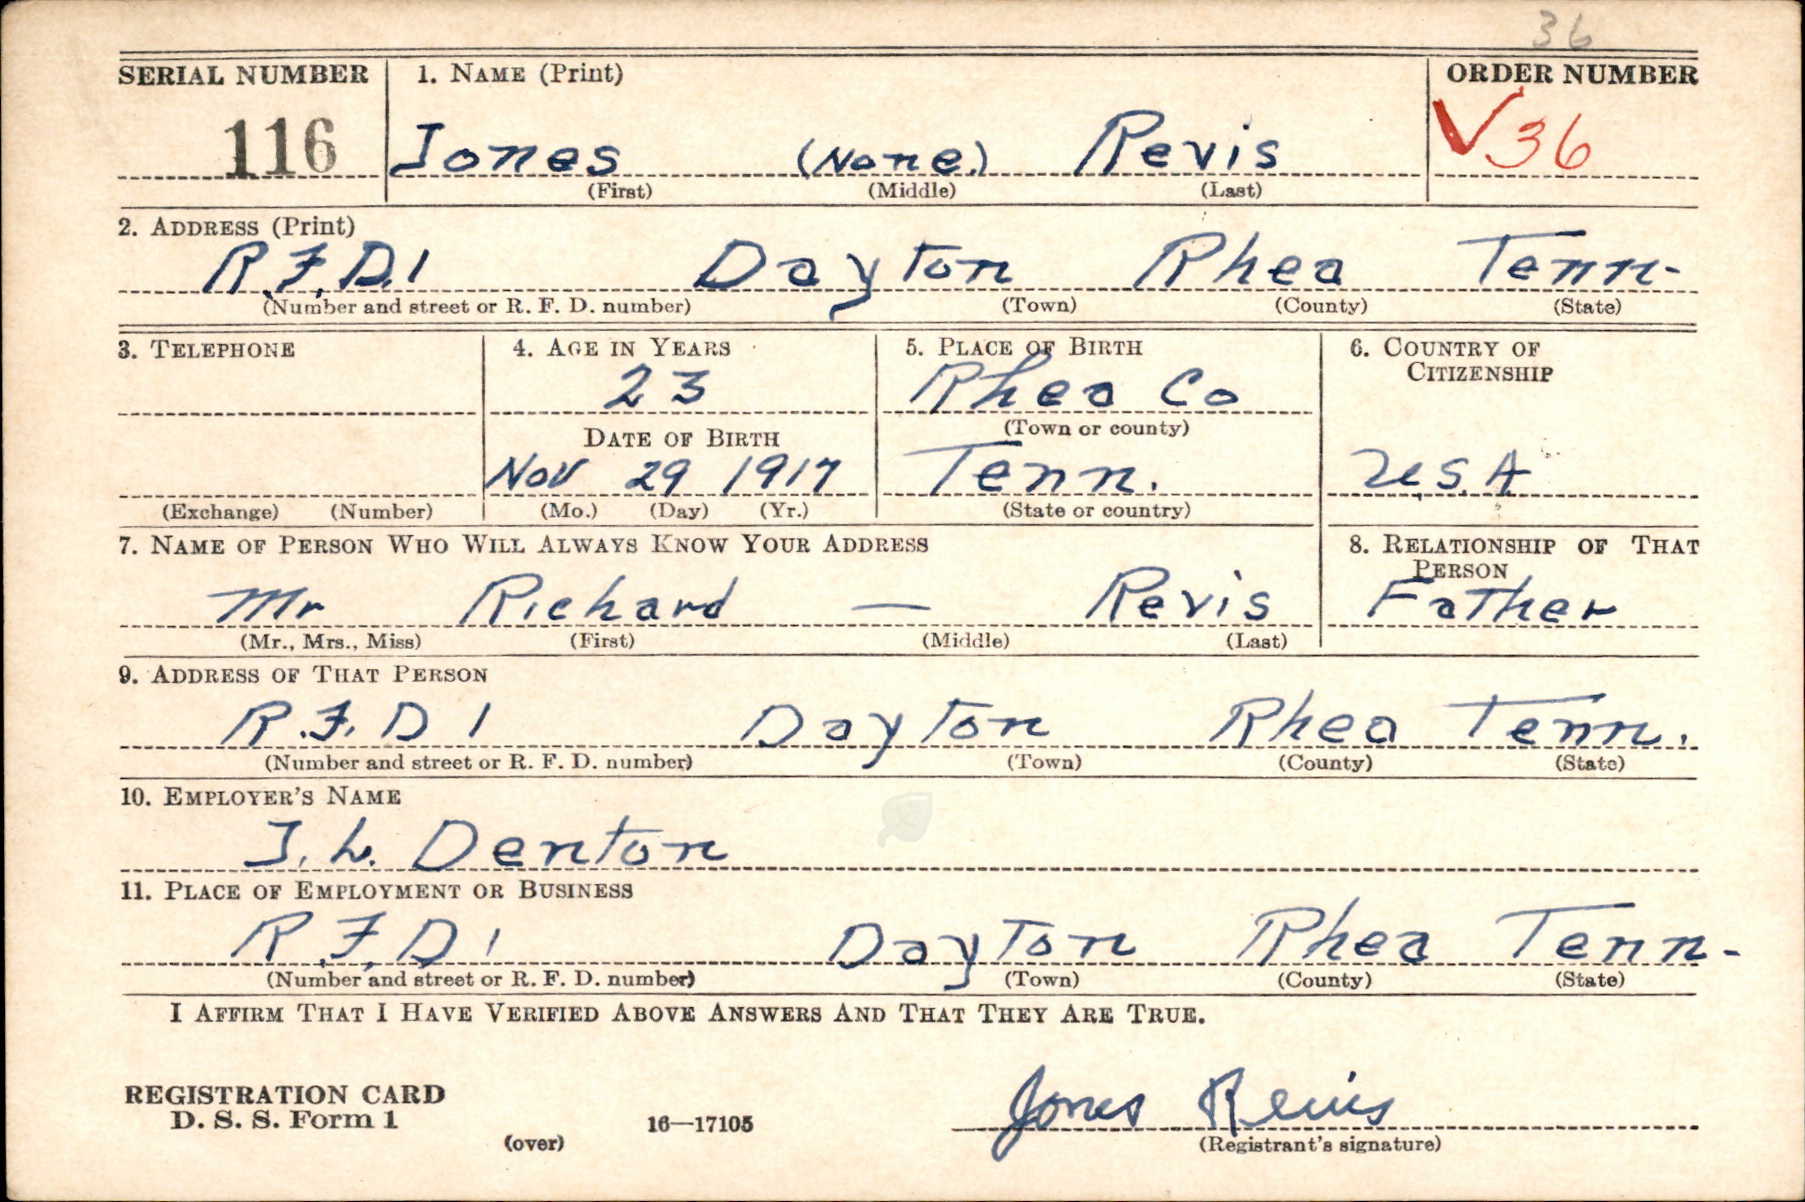 36
SERIAL NUMBER 1. NAME (Print) ORDER NUMBER
116 Jones (None) Revis V36
(First) (Middle) (Last)
2. ADDRESS (Print)
R.F.D.1 Dayton Rhea Tenn-
(Number and street or R. F. D. number) (Town) (County) (State)
3. TELEPHONE 4. AGE IN YEARS 5. PLACE OF BIRTH 6. COUNTRY OF
CITIZENSHIP
23 Rhea Co
DATE OF BIRTH (Town or county)
Nov 29 1917 Tenn. U.S.A
(Exchange) (Number) (Mo.) (Day) (Yr.) (State or country)
7. NAME OF PERSON WHO WILL ALWAYS KNOW YOUR ADDRESS 8. RELATIONSHIP OF THAT
PERSON
Mr Richard — Revis Father
(Mr., Mrs., Miss) (First) (Middle) (Last)
9. ADDRESS OF THAT PERSON
R.F.D 1 Dayton Rhea Tenn.
(Number and street or R. F. D. number) (Town) (County) (State)
10. EMPLOYER'S NAME
J. L. Denton
11. PLACE OF EMPLOYMENT OR BUSINESS
R.F.D 1 Dayton Rhea Tenn-
(Number and street or R. F. D. number) (Town) (County) (State)
I AFFIRM THAT I HAVE VERIFIED ABOVE ANSWERS AND THAT THEY ARE TRUE.
REGISTRATION CARD
D. S. S. Form 1 16—17105 Jones Revis
(over) (Registrant's signature)